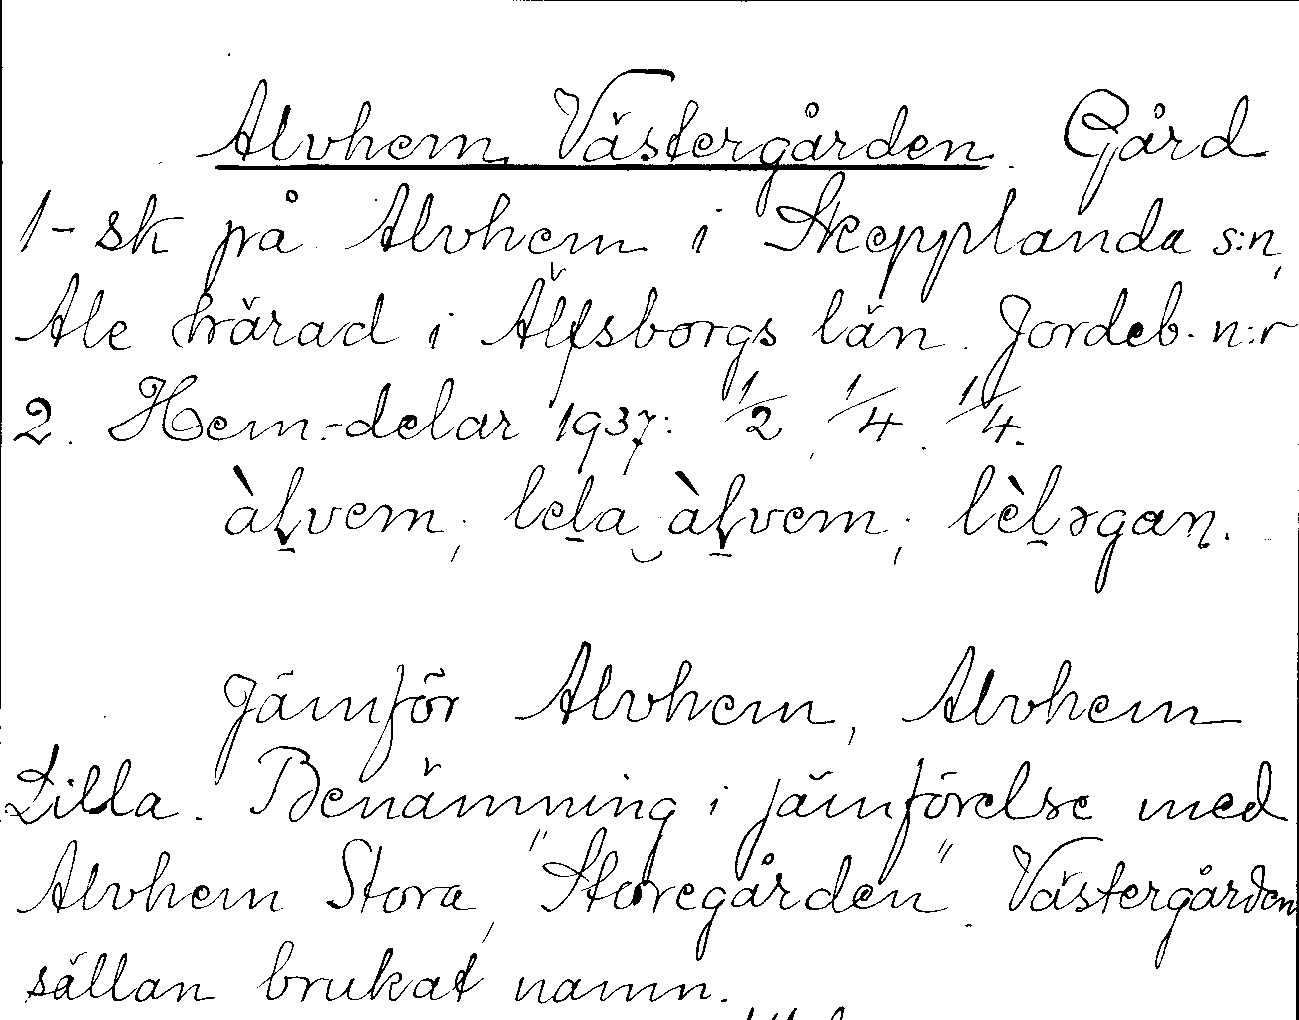 Alvhem, Västergården. Gård
1-sk på Alvhem i Skepplanda s:n,
Ale härad i Älfsborgs län. Jordeb. n:r
2. Hem.-delar 1937: 1/2, 1/4. 1/4.
àḻvem; leḻa‿àḻvem; lèḻərgaɳ.
Jämför Alvhem, Alvhem
Lilla. Benämning i jämförelse med
Alvhem Stora, "Storegården". Västergården
sällan brukat namn.